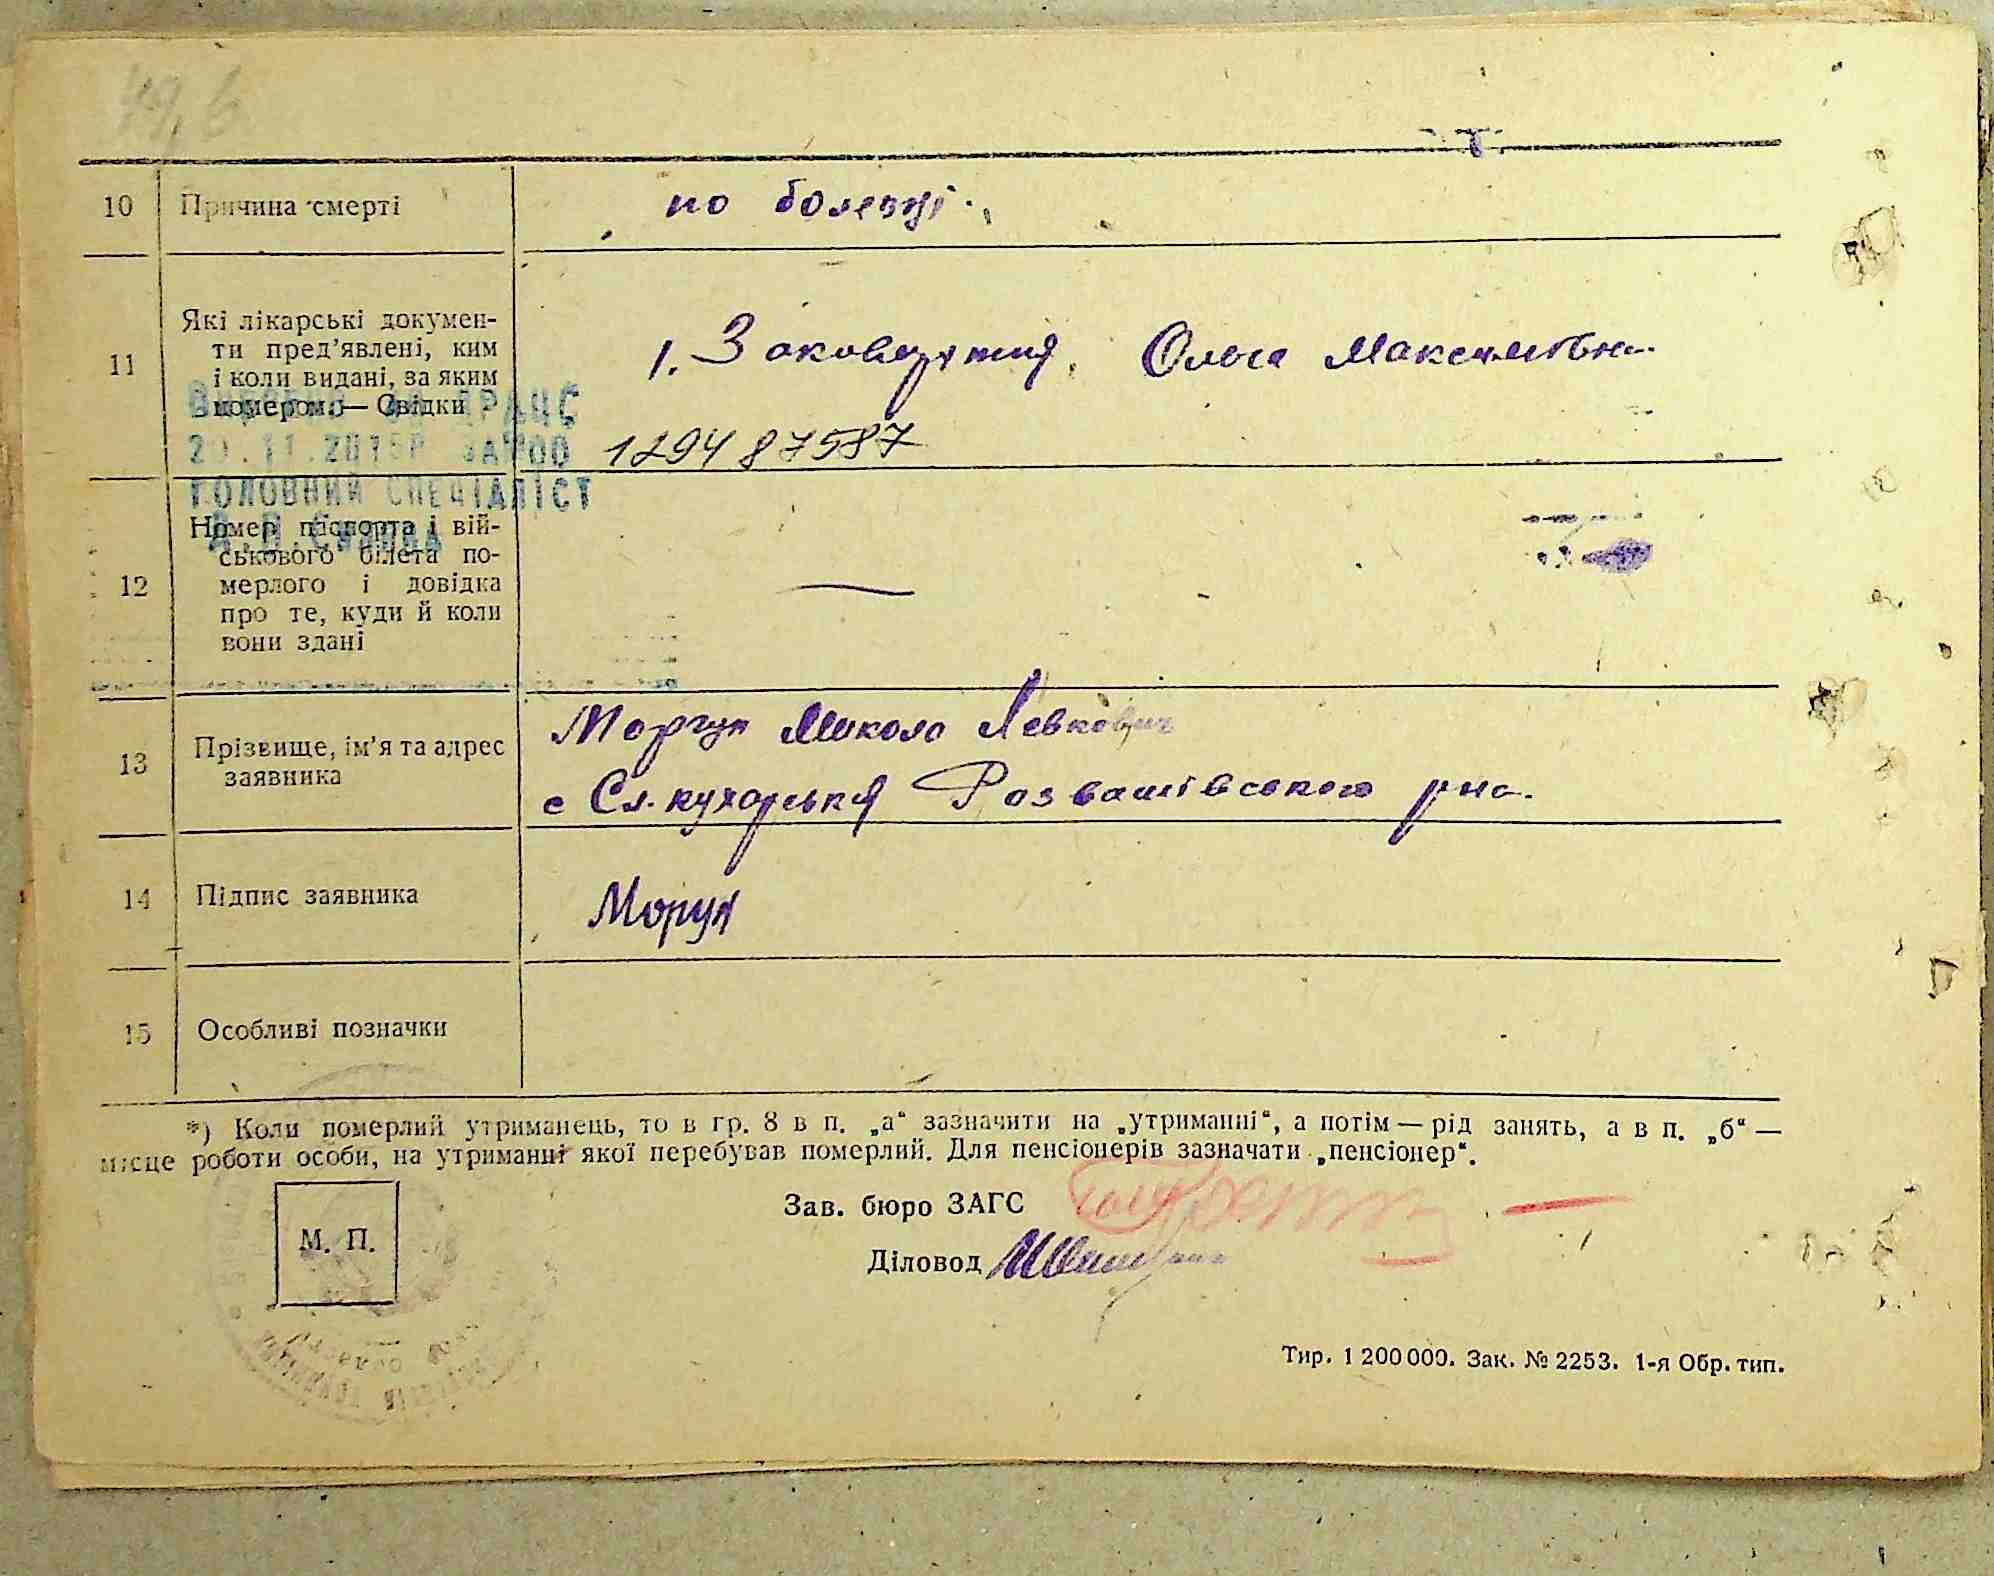 49, б
10 Причина смерті по болезні.
11 Які лікарські докумен-
ти пред’явлені, ким
і коли видані, за яким
номером. — Свідки
1. Заковоротня, Ольга Максимівна
129487587
ДРАЦС
ГОЛОВНИЙ СПЕЦІАЛІСТ
12 Номер паспорта і вій-
ськового білета по-
мерлого і довідка
про те, куди й коли
вони здані
—
13 Прізвище, ім’я та адрес
заявника
Моргун Микола Левкович
с Сл. кухарська Розважівського рна.
14 Підпис заявника Моргун
15 Особливі позначки
*) Коли померлий утриманець, то в гр. 8 в п. „а“ зазначити на „утриманні“, а потім — рід занять, а в п. „б“ —
місце роботи особи, на утриманні якої перебував померлий. Для пенсіонерів зазначати „пенсіонер“.
Зав. бюро ЗАГС
М. П.
Діловод
Тир. 1 200 000. Зак. № 2253. 1-я Обр. тип.